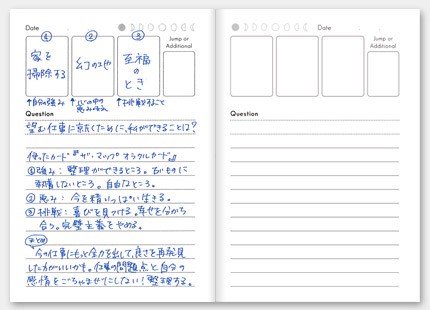 Date
① ② ③
家を
掃除する
幻の
至福
の
とき
Jump or
Additional
↑自分の強み ↑心の中の恵み ↑挑戦すること
Question
望む仕事に就くために、私ができることは?
使ったカード『ザ・マップオラクルカード』
①強み:整理ができるところ。古いものに
執着しないところ。自由なところ。
②恵み:今を精いっぱい生きる。
③挑戦:喜びを見つける。幸せを分かち
合う。完璧主義をやめる。
まとめ
今の仕事にもっと全力を出して、良さを再発見
した方がいいかも。仕事の問題点と自分の
感情をごちゃまぜにしない!整理する。
Date
Jump or
Additional
Question